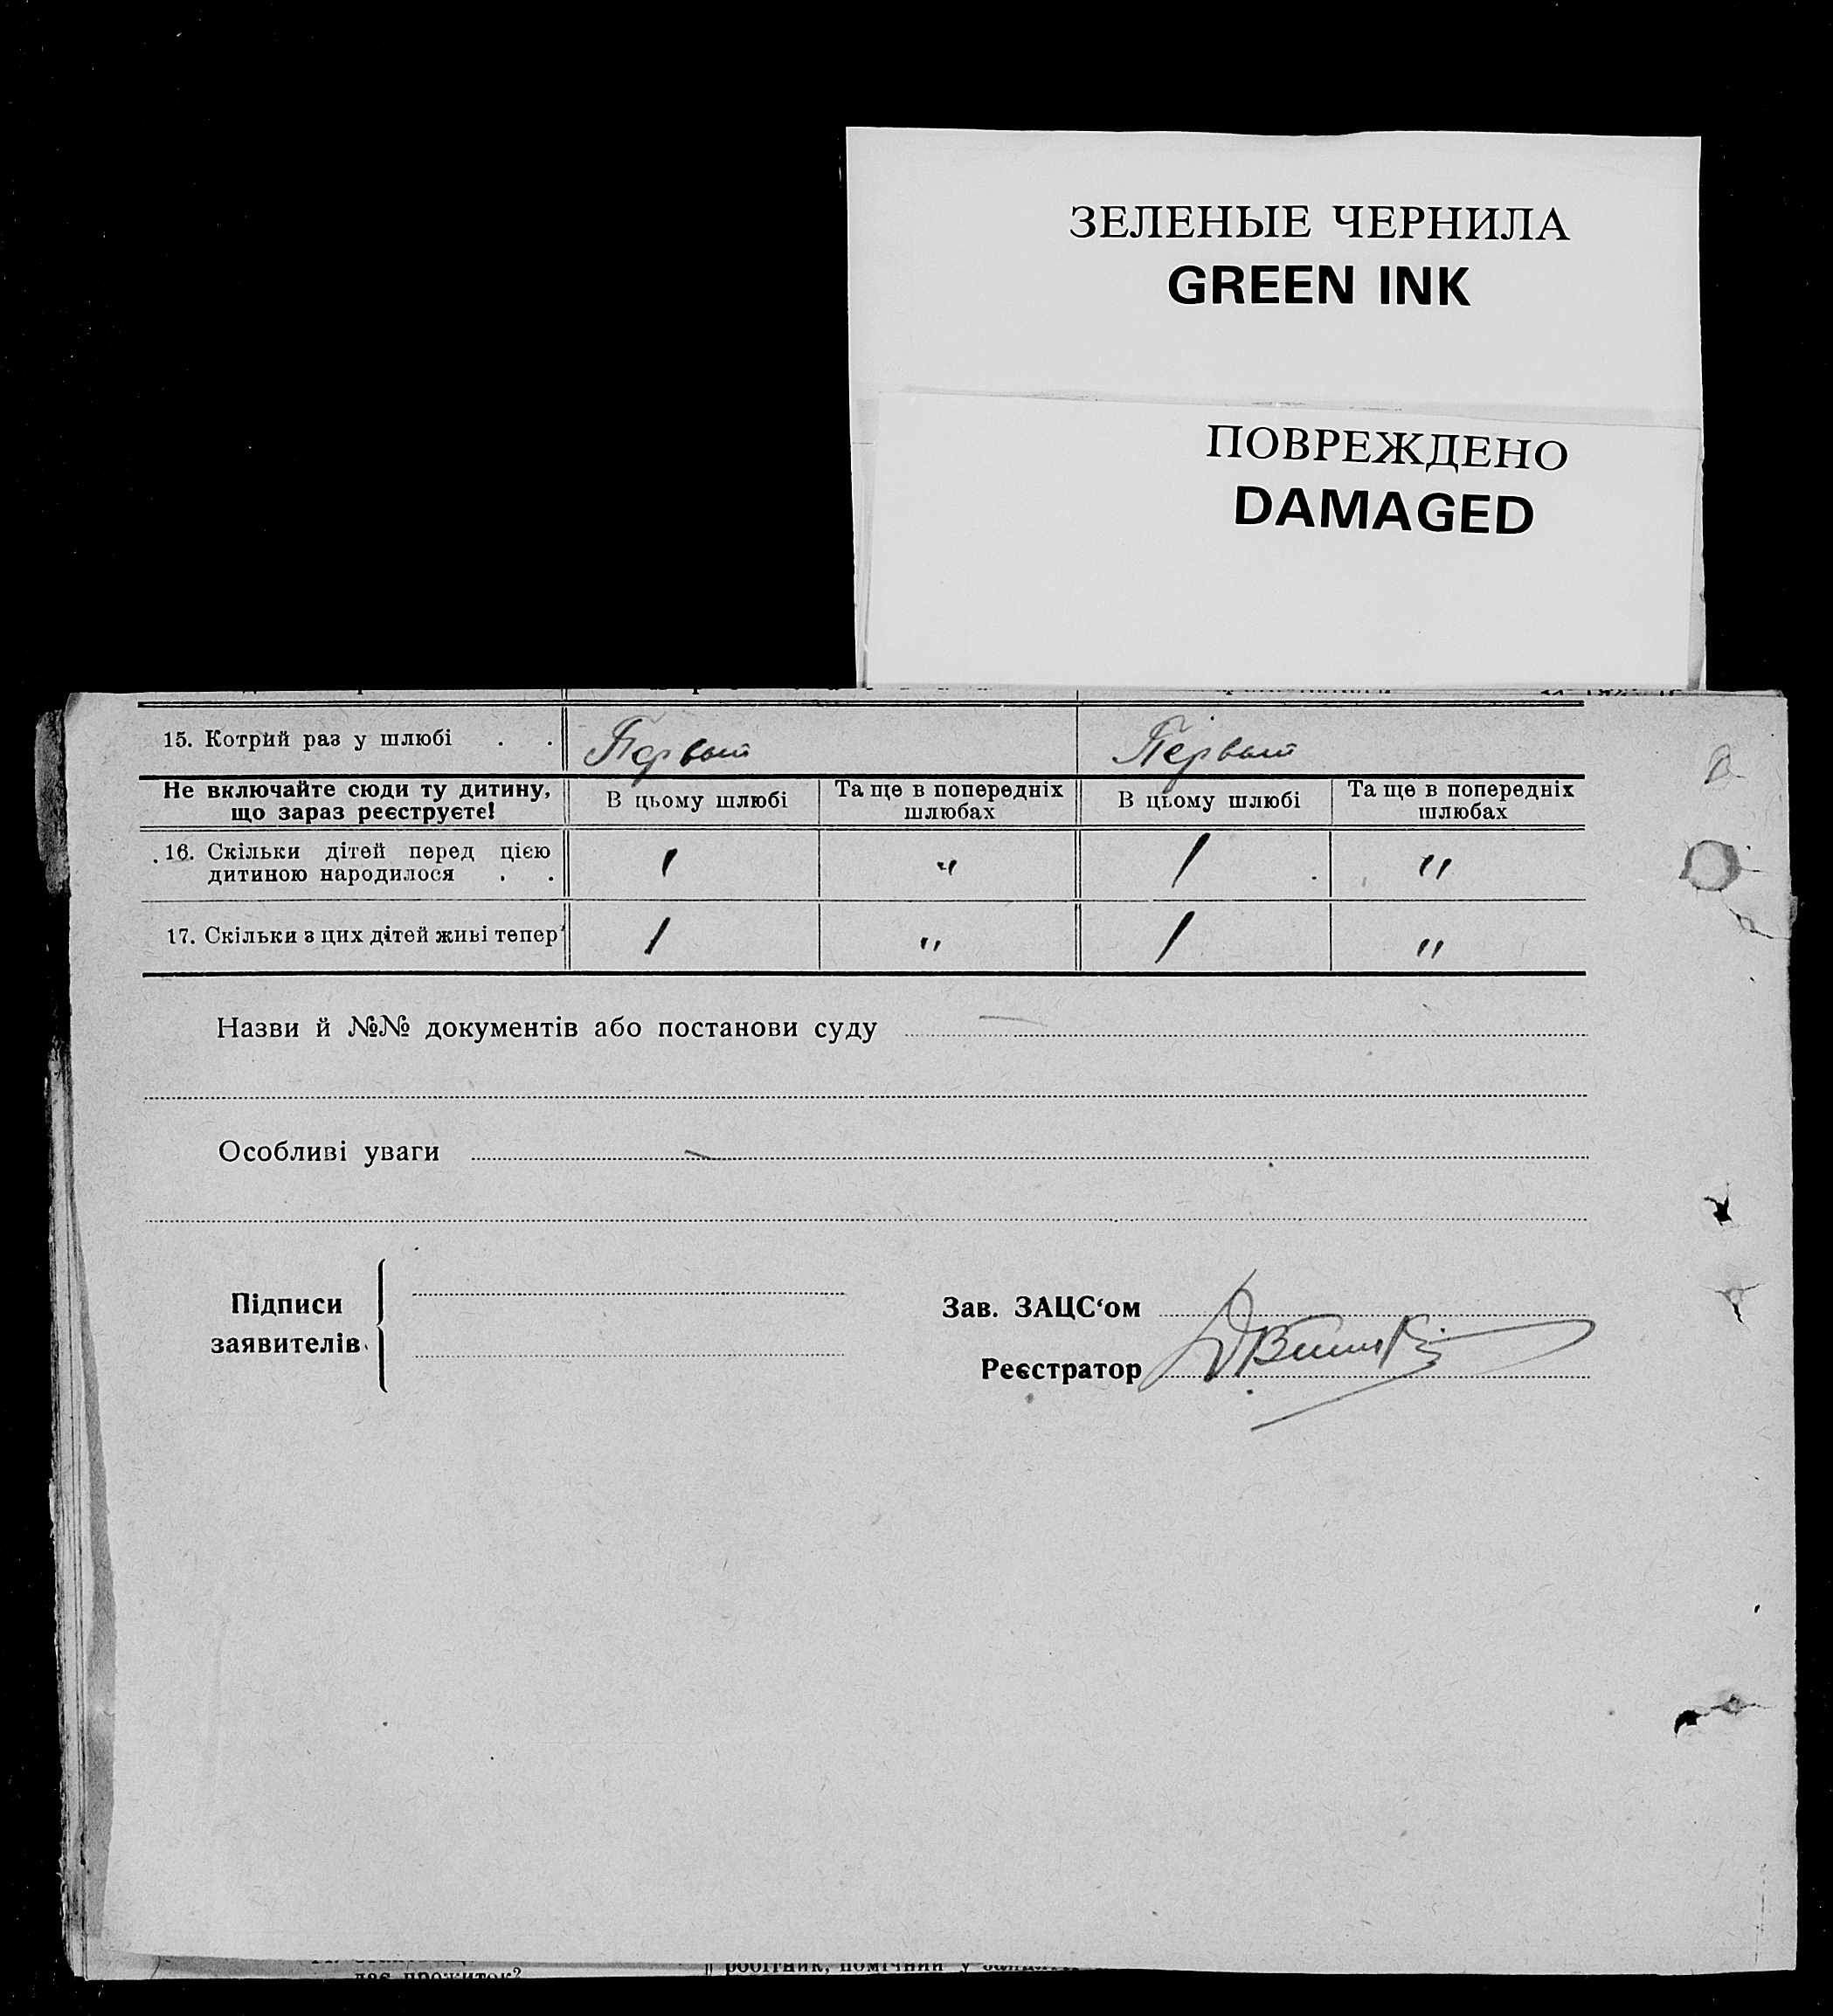 ЗЕЛЕНЫЕ ЧЕРНИЛА
GREEN INK
ПОВРЕЖДЕНО
DAMAGED
15. Котрий раз у шлюбі . . Первый Первый
Не включайте сюди ту дитину, що зараз реєструєте! В цьому шлюбі Та ще в попередніх шлюбах В цьому шлюбі Та ще в попередніх шлюбах
16. Скільки дітей перед цією дитиною народилося . . 1 " 1 "
17. Скільки з цих дітей живі тепер 1 " 1 "
Назви й №№ документів або постанови суду
Особливі уваги
Підписи заявителів
Зав. ЗАЦС‘ом
Реєстратор
дає прожиток?
робітник, помічний у